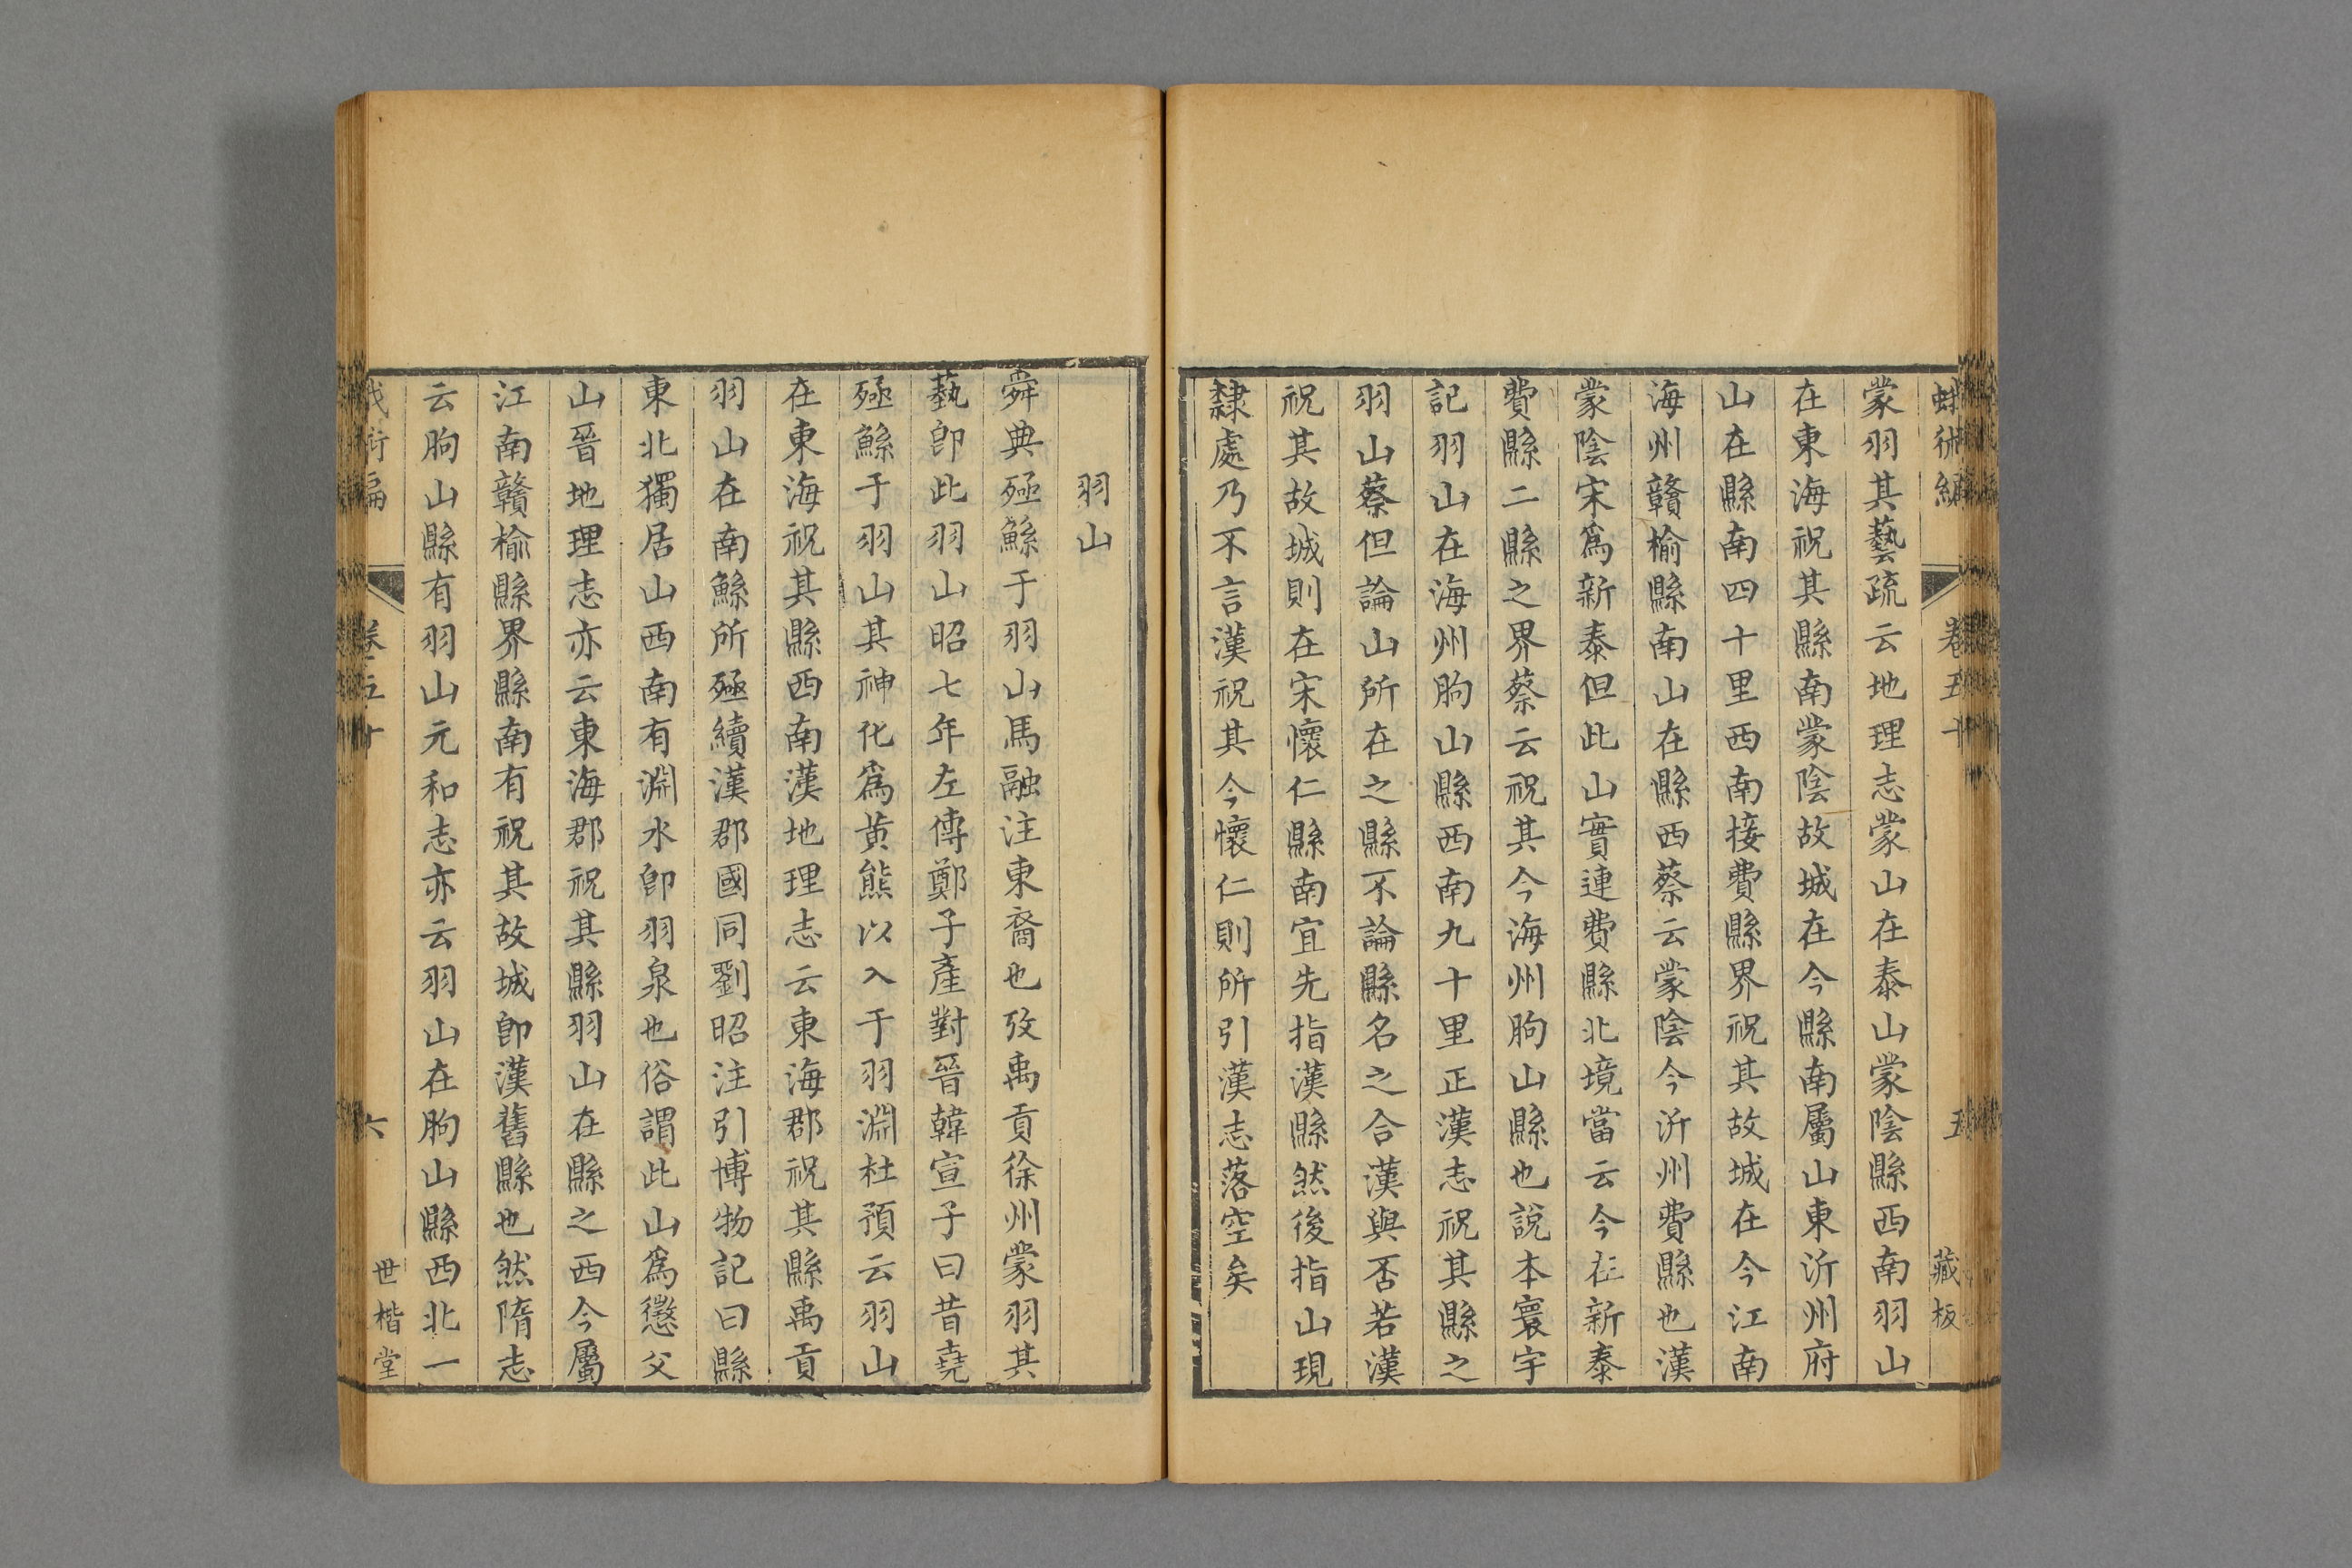 蛾術編 卷五十 五 藏板
蒙羽其藝疏云地理志蒙山在泰山蒙陰縣西南羽山
在東海祝其縣南蒙陰故城在今縣南屬山東沂州府
山在縣南四十里西南接費縣界祝其故城在今江南
海州贛榆縣南山在縣西蔡云蒙陰今沂州費縣也漢
蒙陰宋爲新泰但此山實連費縣北境當云今在新泰
費縣二縣之界蔡云祝其今海州朐山縣也說本寰宇
記羽山在海州朐山縣西南九十里正漢志祝其縣之
羽山蔡但論山所在之縣不論縣名之合漢與否若漢
祝其故城則在宋懷仁縣南宜先指漢縣然後指山現
隸處乃不言漢祝其今懷仁則所引漢志落空矣
羽山
舜典殛鯀于羽山馬融注東裔也攷禹貢徐州蒙羽其
藝卽此羽山昭七年左傳鄭子產對晉韓宣子曰昔堯
殛鯀于羽山其神化爲黃熊以入于羽淵杜預云羽山
在東海祝其縣西南漢地理志云東海郡祝其縣禹貢
羽山在南鯀所殛續漢郡國同劉昭注引博物記曰縣
東北獨居山西南有淵水卽羽泉也俗謂此山爲懲父
山晉地理志亦云東海郡祝其縣羽山在縣之西今屬
江南贛榆縣界縣南有祝其故城卽漢舊縣也然隋志
云朐山縣有羽山元和志亦云羽山在朐山縣西北一
蛾術編 卷五十 六 世楷堂